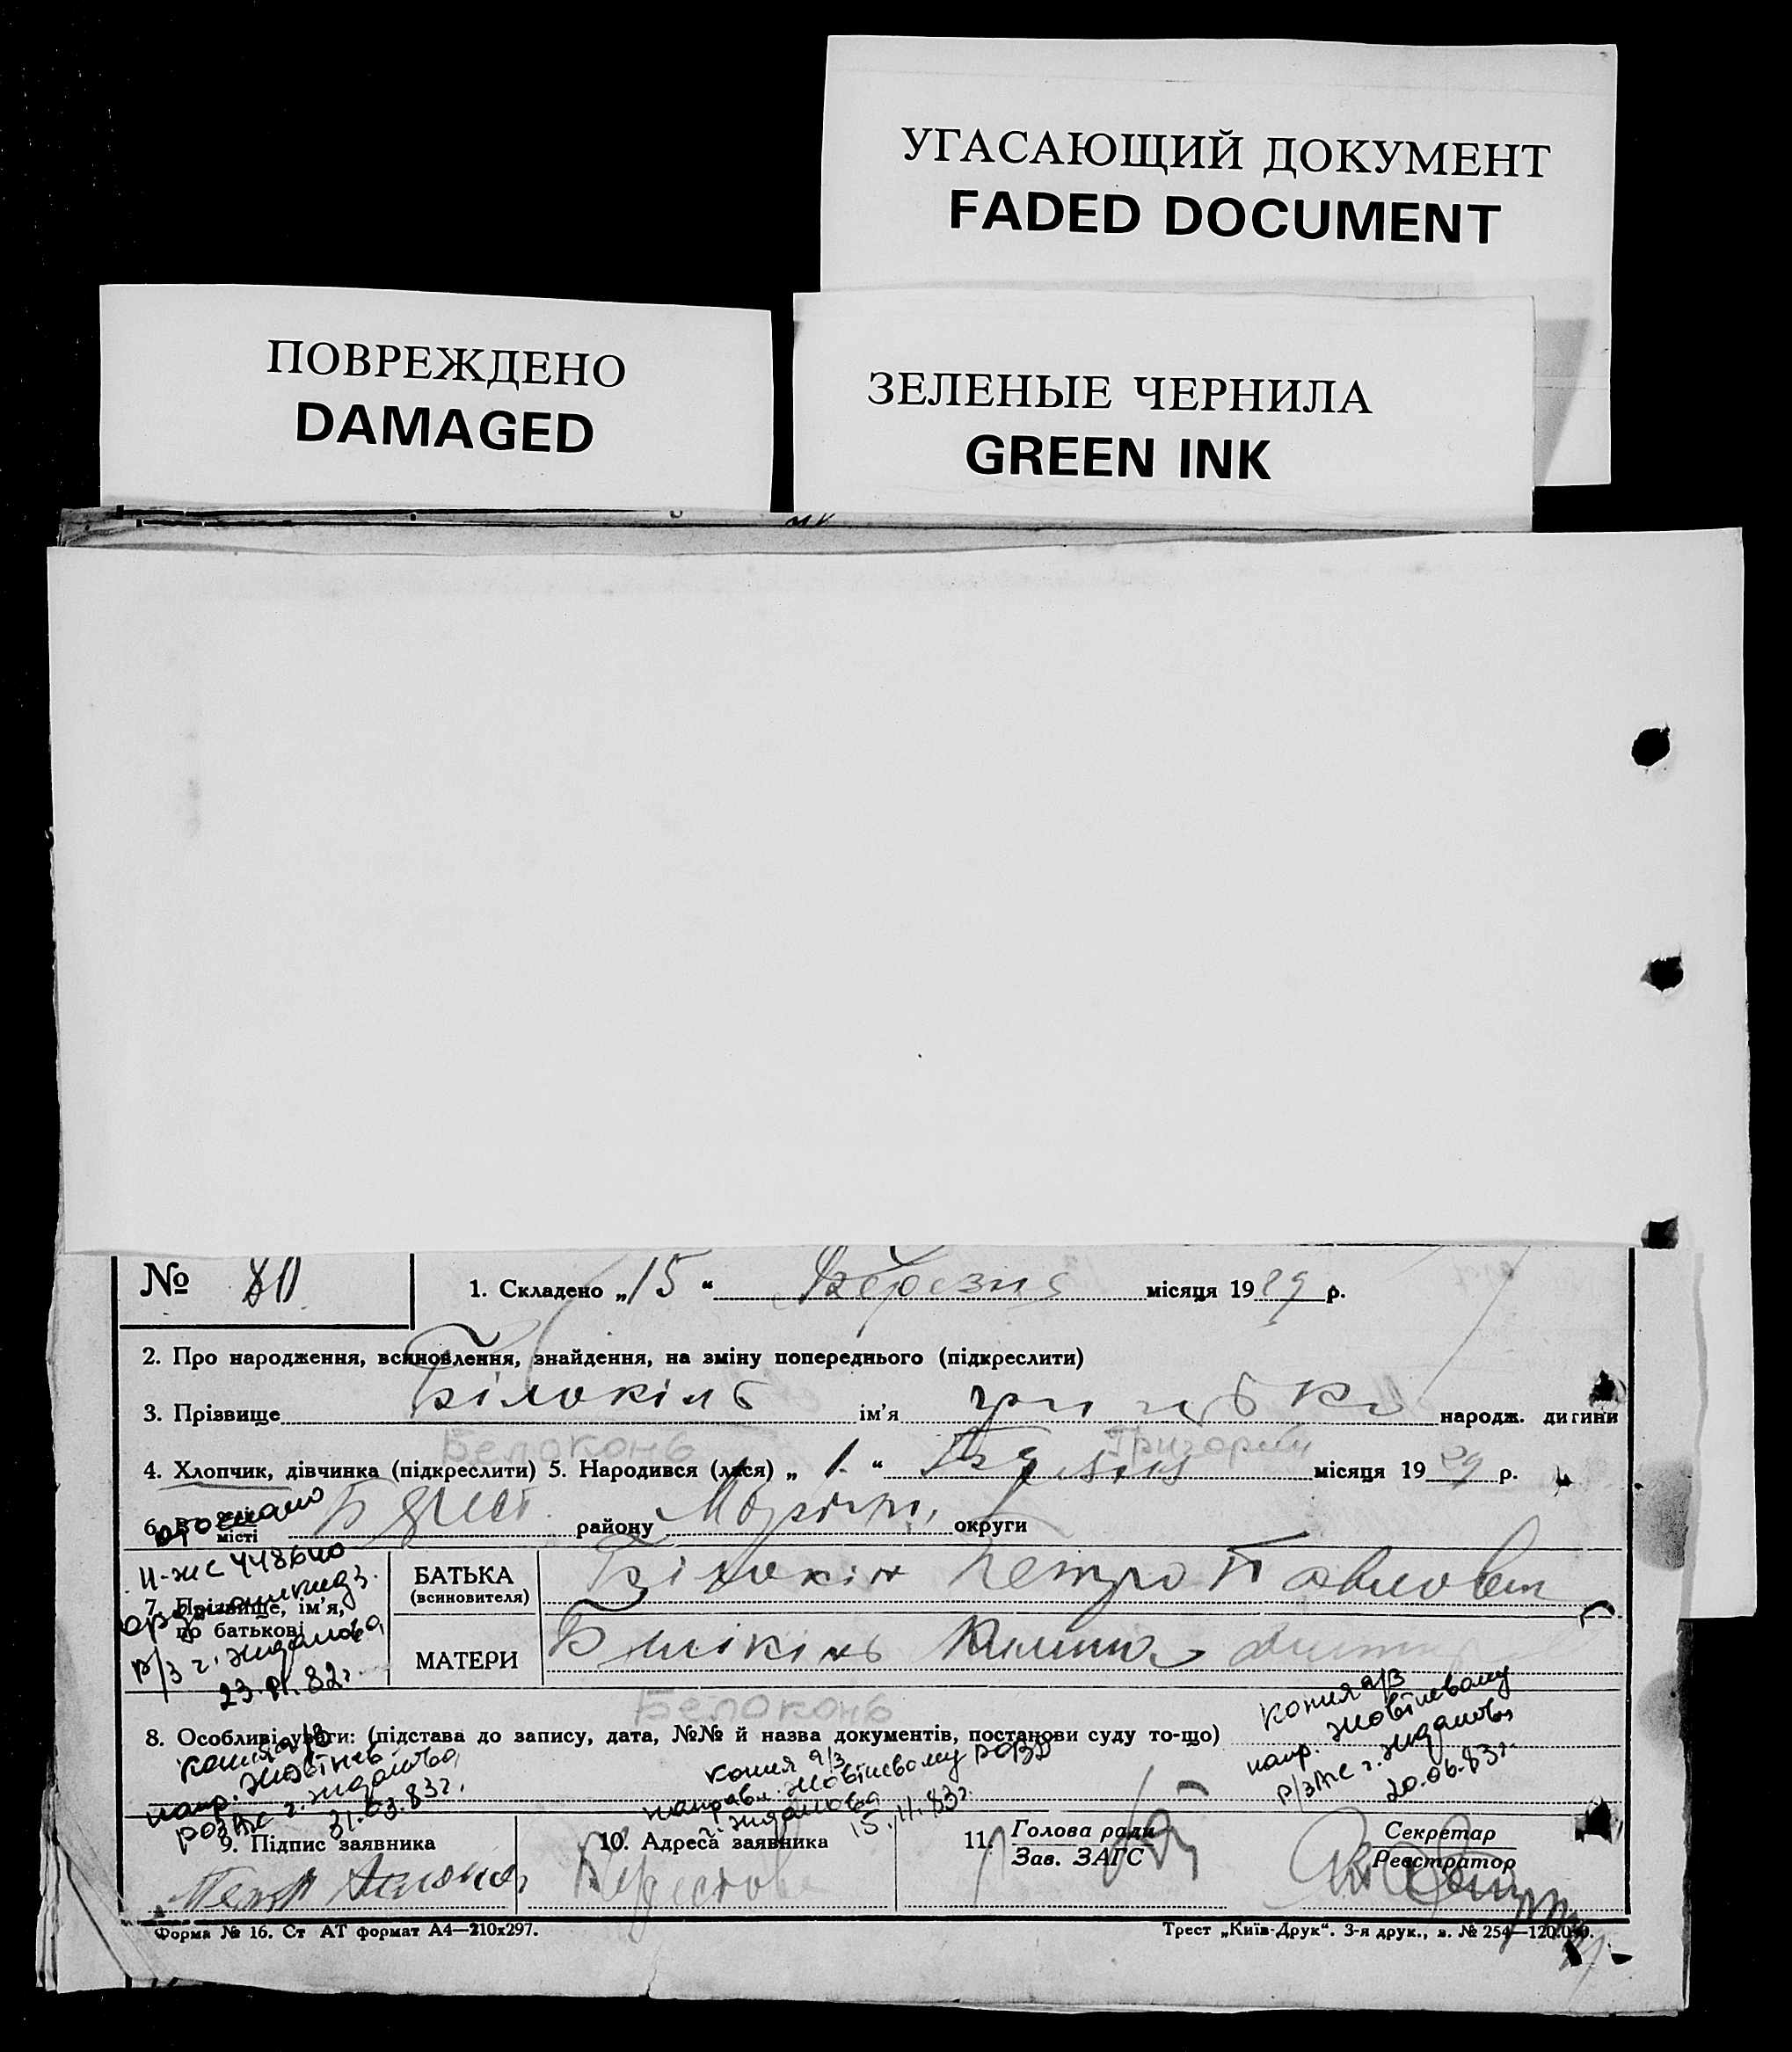 УГАСАЮЩИЙ ДОКУМЕНТ
FADED DOCUMENT
ПОВРЕЖДЕНО
DAMAGED
ЗЕЛЕНЫЕ ЧЕРНИЛА
GREEN INK
№ 80
1. Складено „15“ березня місяця 1929 р.
2. Про народження, всиновлення, знайдення, на зміну попереднього (підкреслити)
3. Прізвище Білокінь ім'я Грицько народж. дитини
Белоконь Григорий
4. Хлопчик, дівчинка (підкреслити) 5. Народився (лася) „ 1. “ місяця 1929 р.
6. місті району Маріуп. округи
II-ЖС 448640
7. Прізвище, ім'я, по батькові
р/з г. Жданова
23. 82г.
БАТЬКА Білокінь Петро Павлович
(всиновителя)
МАТЕРИ Білокінь
Белоконь
8. Особливі уваги: (підстава до запису, дата, №№ й назва документів, постанови суду то-що)
копия а/з
напр. Жовтнев
РОЗЖС г. Жданова
31.03.83г.
копия а/з
направл. Жовтневому РОВД
г. Жданова
15.11.83г.
копия а/з
напр. Жовтневому
Р/ЗЖС г. Жданова
20.06.83г.
9. Підпис заявника
10. Адреса заявника
11. Голова ради
Зав. ЗАГС
Секретар
Реєстратор
Форма № 16. Ст АТ формат А4—210х297.
Трест „Київ-Друк“. 3-я друк., з. № 254—120.000.